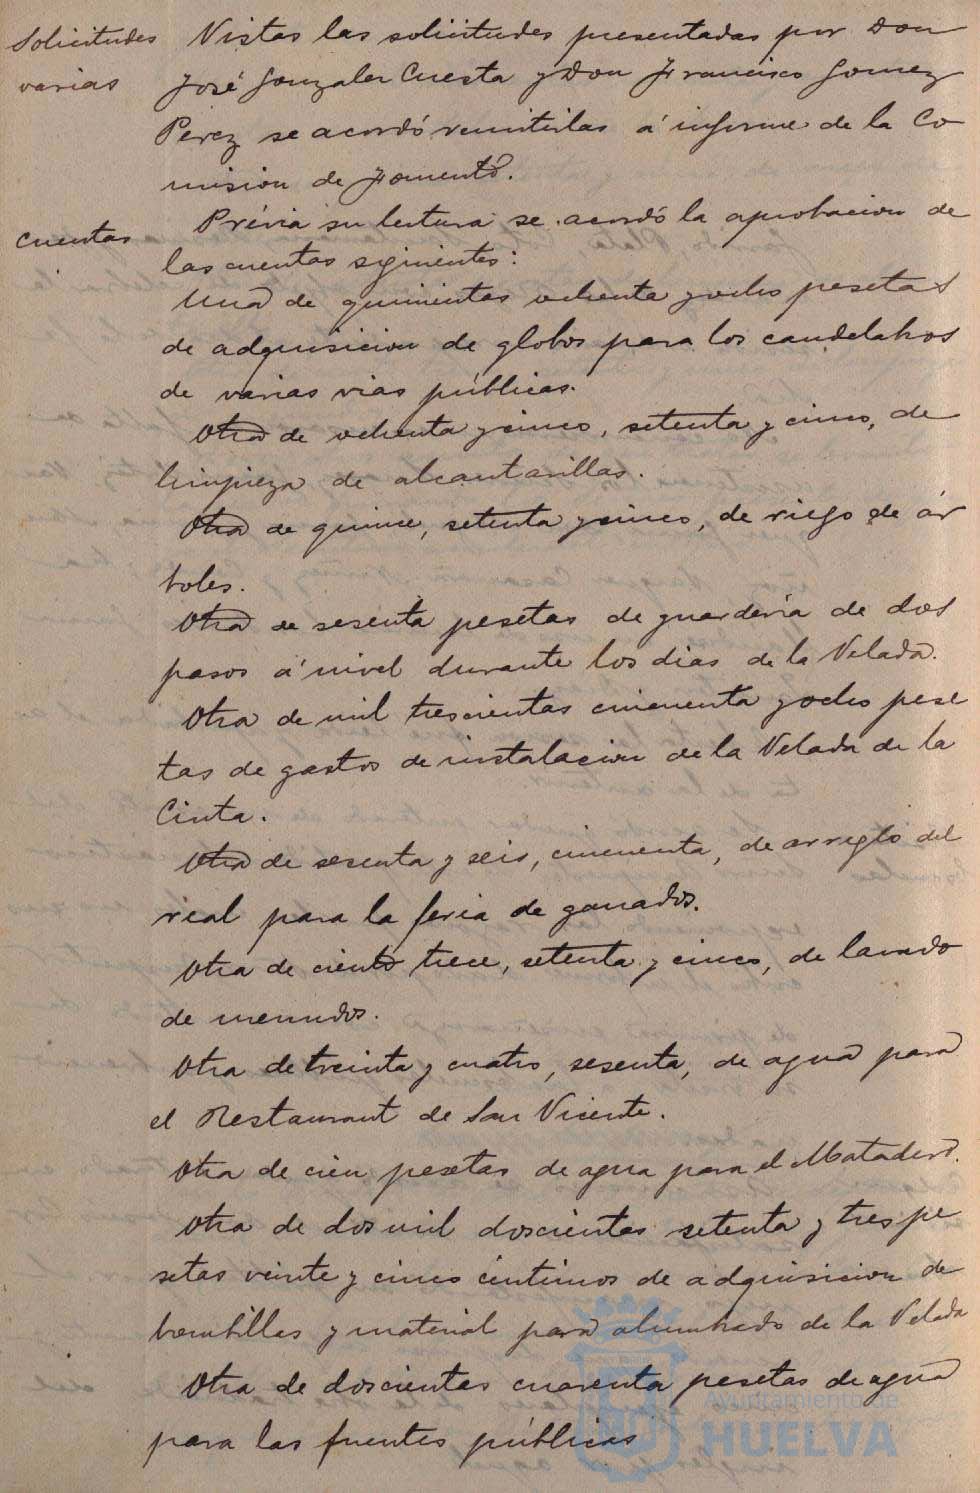 Solicitudes
varias
Vistas las solicitudes presentadas por Don
José Gonzalez Cuesta y Don Francisco Gomez
Perez se acordó remitirlas á informe de la Co
mision de Fomento.
Cuentas
Prévia su lectura se acordó la aprobacion de
las cuentas siguientes:
Una de quinientas ochenta y ocho pesetas
de adquisicion de globos para los candelabros
de varias vias públicas.
Otra de ochenta y cinco, setenta y cinco, de
limpieza de alcantarillas.
Otra de quince, setenta y cinco, de riego de ár
boles.
Otra de sesenta pesetas de guardería de dos
pasos á nivel durante los dias de la Velada.
Otra de mil trescientas cincuenta y ocho pese
tas de gastos de instalacion de la Velada de la
Cinta.
Otra de sesenta y seis, cincuenta, de arreglo del
real para la feria de ganados.
Otra de ciento trece, setenta y cinco, de lavado
de menudos.
Otra de treinta y cuatro, sesenta, de agua para
el Restaurant de San Vicente.
Otra de cien pesetas de agua para el Matadero.
Otra de dos mil doscientas setenta y tres pe
setas veinte y cinco céntimos de adquisicion de
bombillas y material para alumbrado de la Velada
Otra de doscientas cuarenta pesetas de agua
para las fuentes públicas
Ayuntamiento de
HUELVA